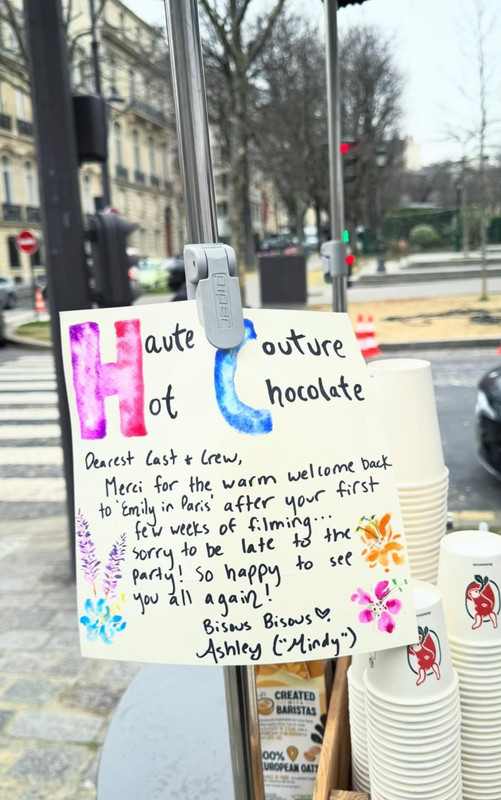 Haute Couture
Hot Chocolate
Dearest Cast + Crew,
Merci for the warm welcome back
to 'Emily in Paris' after your first
few weeks of filming...
Sorry to be late to the
party! So happy to see
you all again!
Bisous Bisous♡.
Ashley ("Mindy")
CREATED
WITH
BARISTAS
100%
EUROPEAN OATS